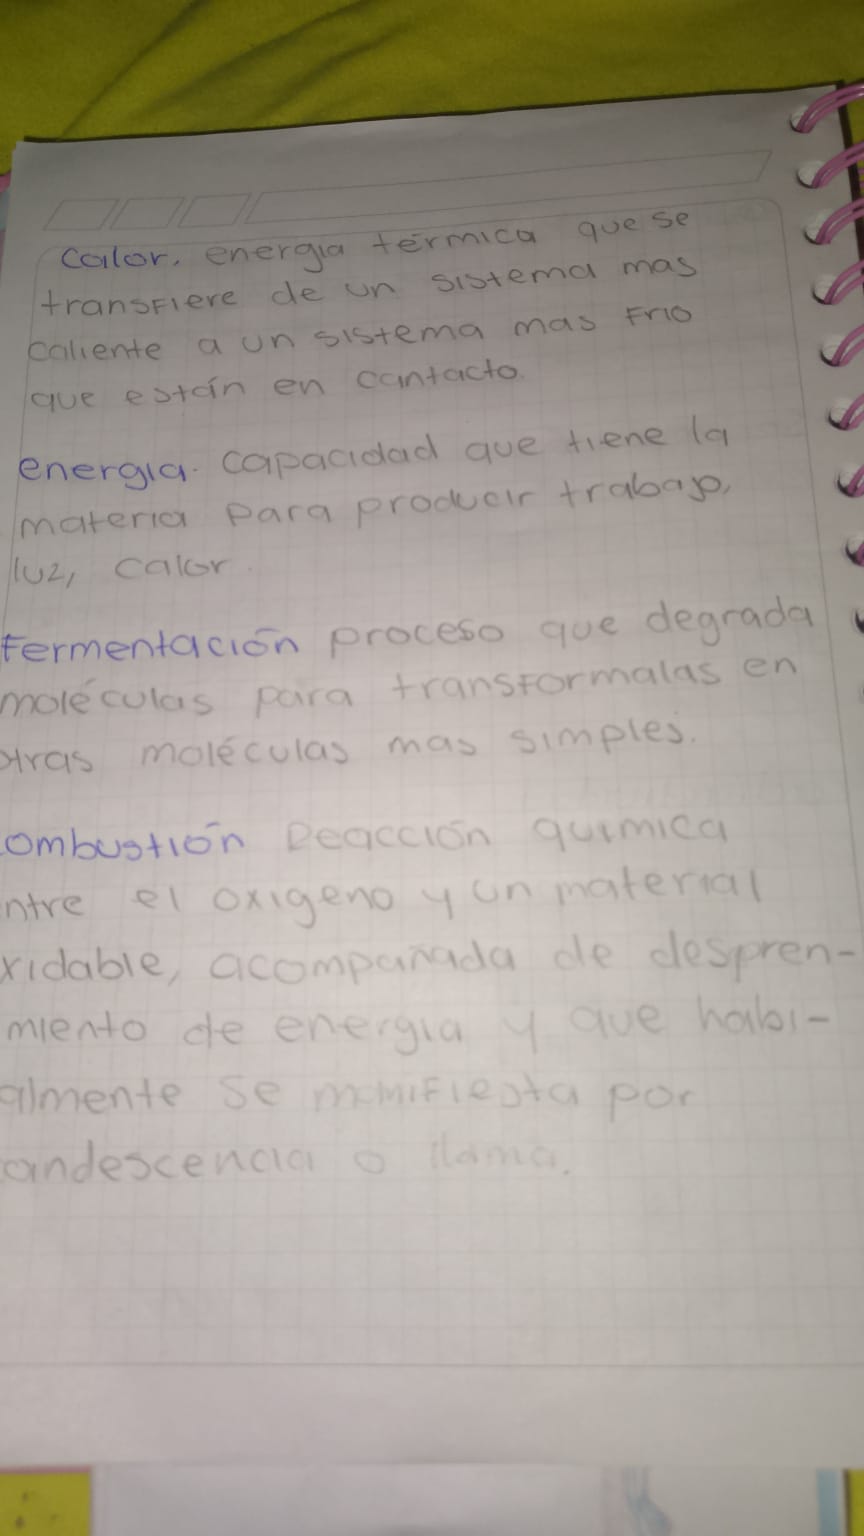 Calor. energia térmica que se
transfiere de un sistema mas
caliente a un sistema mas frio
que están en cantacto.
energia. capacidad que tiene la
materia para producir trabajo,
luz, calor.
Fermentación proceso que degrada
moléculas para transformalas en
otras moléculas mas simples.
ombustión Reacción química
ntre el oxigeno y un material
xidable, acompañada de despren-
miento de energia y que habi-
almente se manifiesta por
andescencia o llama.